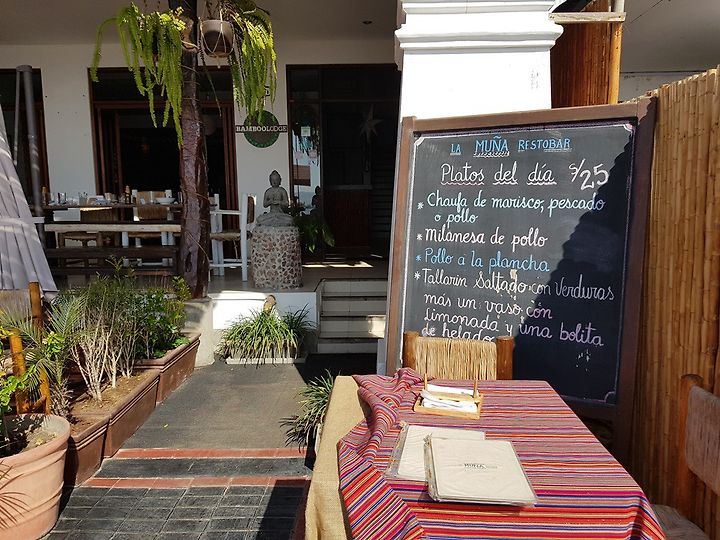 BAMBOOLODGE
LA MUÑA RESTOBAR
Platos del día S/25
* Chaufa de marisco, pescado
o pollo
* Milanesa de pollo
* Pollo a la plancha
* Tallarin Saltado con Verduras
más un vaso con
Limonada y una bolita
de helado
MUÑA